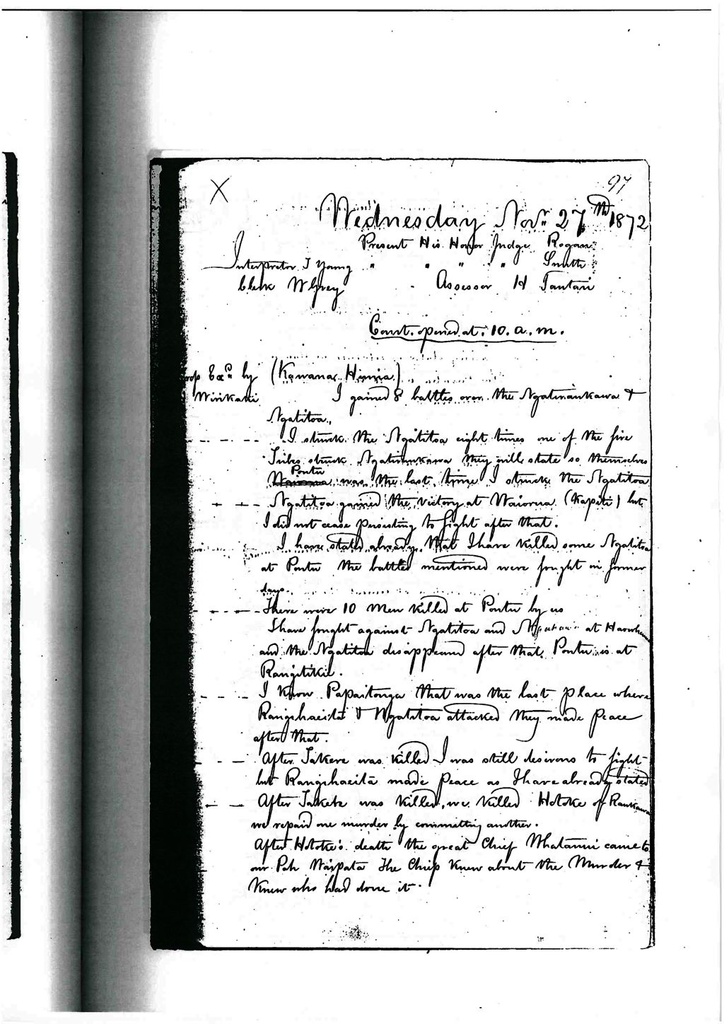 97
X
Wednesday Nov. 27th 1872
Present His Honor Judge Rogan
Interpreter J Young " " " " Smith
Clerk W Grey - Assessor H Tautari
Court opened at 10. a.m.
by (Kawana Hunia)
Wirikaki I gained 8 battles over the Ngatiraukawa &
Ngatitoa.
I struck the Ngatitoa eight times one of the five
Tribes struck Ngatiraukawa they will state so themselves
Poutu was the last time I struck the Ngatitoa
Ngatitoa gained the victory at Waiorua (Kapiti) but
I did not cease persisting to fight after that.
I have stated already that I have killed some Ngatitoa
at Poutu the battles mentioned were fought in former
days.
There were 10 Men killed at Poutu by us
I have fought against Ngatitoa and at
and the Ngatitoa disappeared after that. Poutu is at
Rangitikei.
I know Papaitonga that was the last place where
Rangihaeita & Ngatitoa attacked they made peace
after that.
After Takere was killed I was still desirous to fight
but Rangihaeita made peace as I have already stated
After Takere was killed, we killed Hotoke of Raukawa
we repaid one murder by committing another.
After Hotoke's death the great Chief Whatanui came to
our Pah Waipata The Chief knew about the Murder &
knew who had done it.